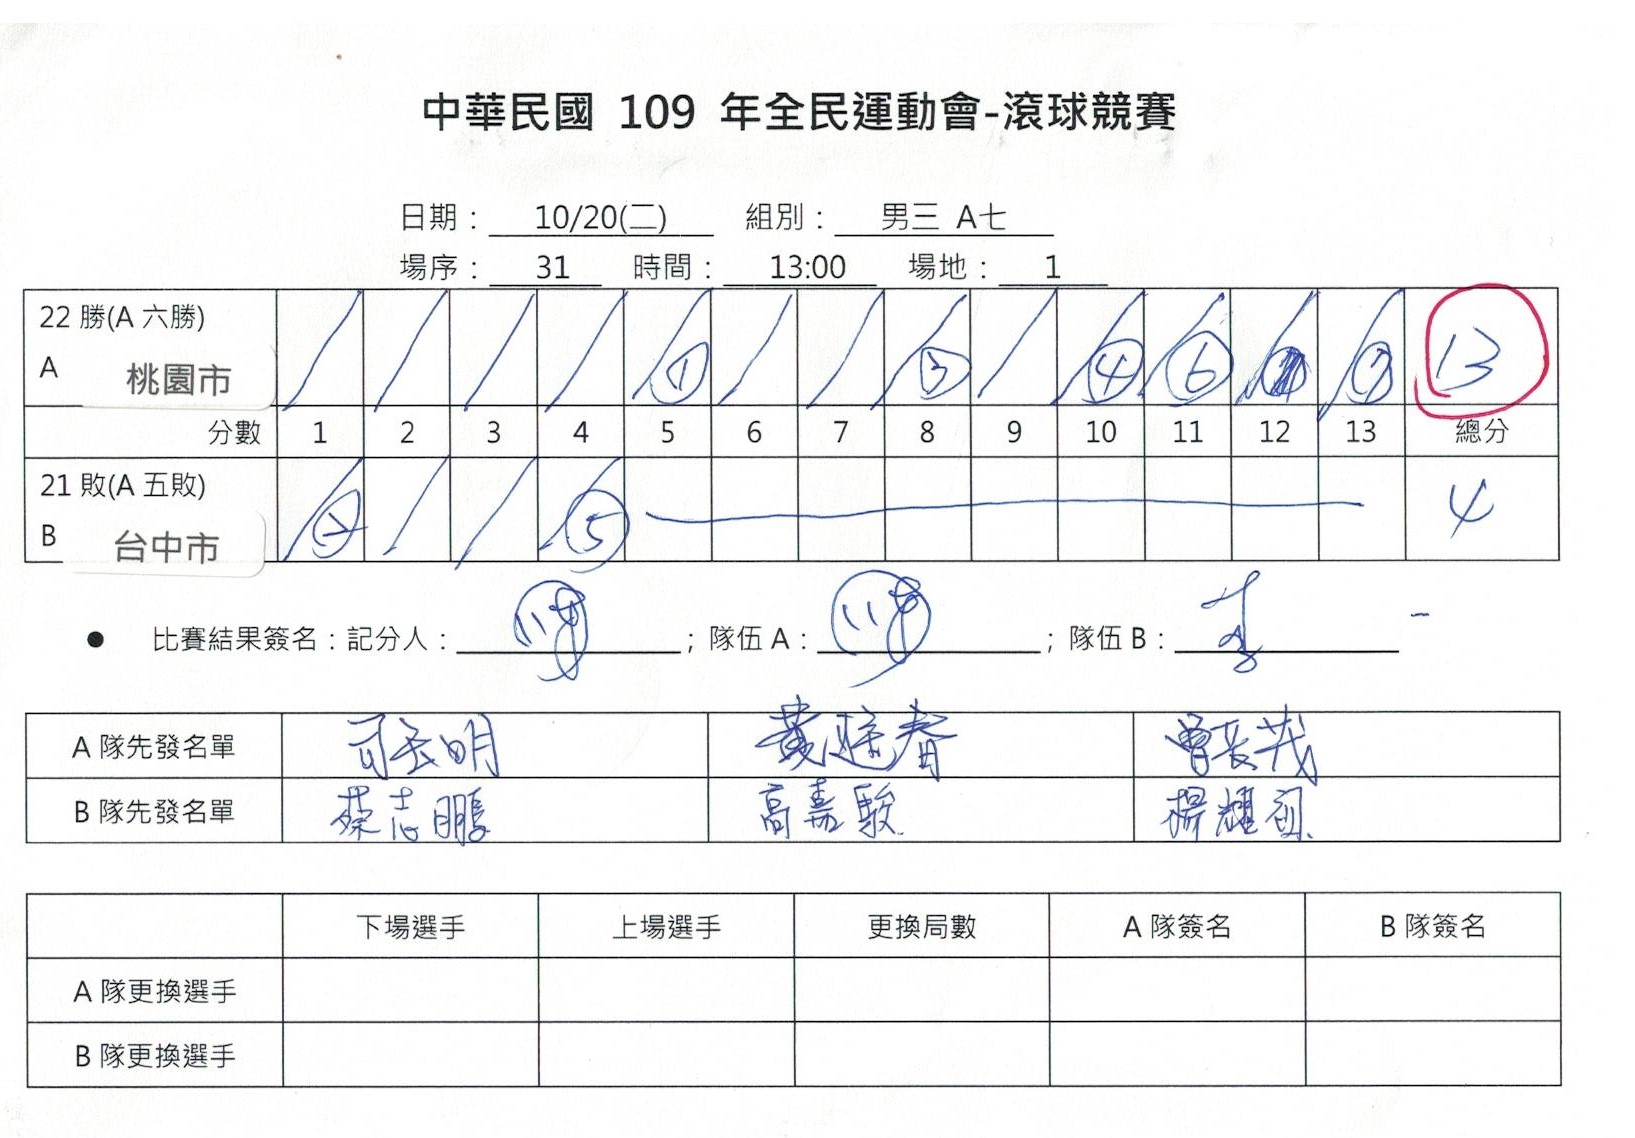 中華民國 109 年全民運動會-滾球競賽
日期： 10/20(二) 組別： 男三 A七
場序： 31 時間： 13:00 場地： 1
22 勝(A 六勝)
A 桃園市 ① ③ ④ ⑥ ⑦ 13
分數 1 2 3 4 5 6 7 8 9 10 11 12 13 總分
21 敗(A 五敗)
B 台中市 ② ⑤ 4
● 比賽結果簽名：記分人： ；隊伍 A： ；隊伍 B：
A 隊先發名單 曾長茂
B 隊先發名單 蔡志鵬 高嘉駿
下場選手 上場選手 更換局數 A 隊簽名 B 隊簽名
A 隊更換選手
B 隊更換選手